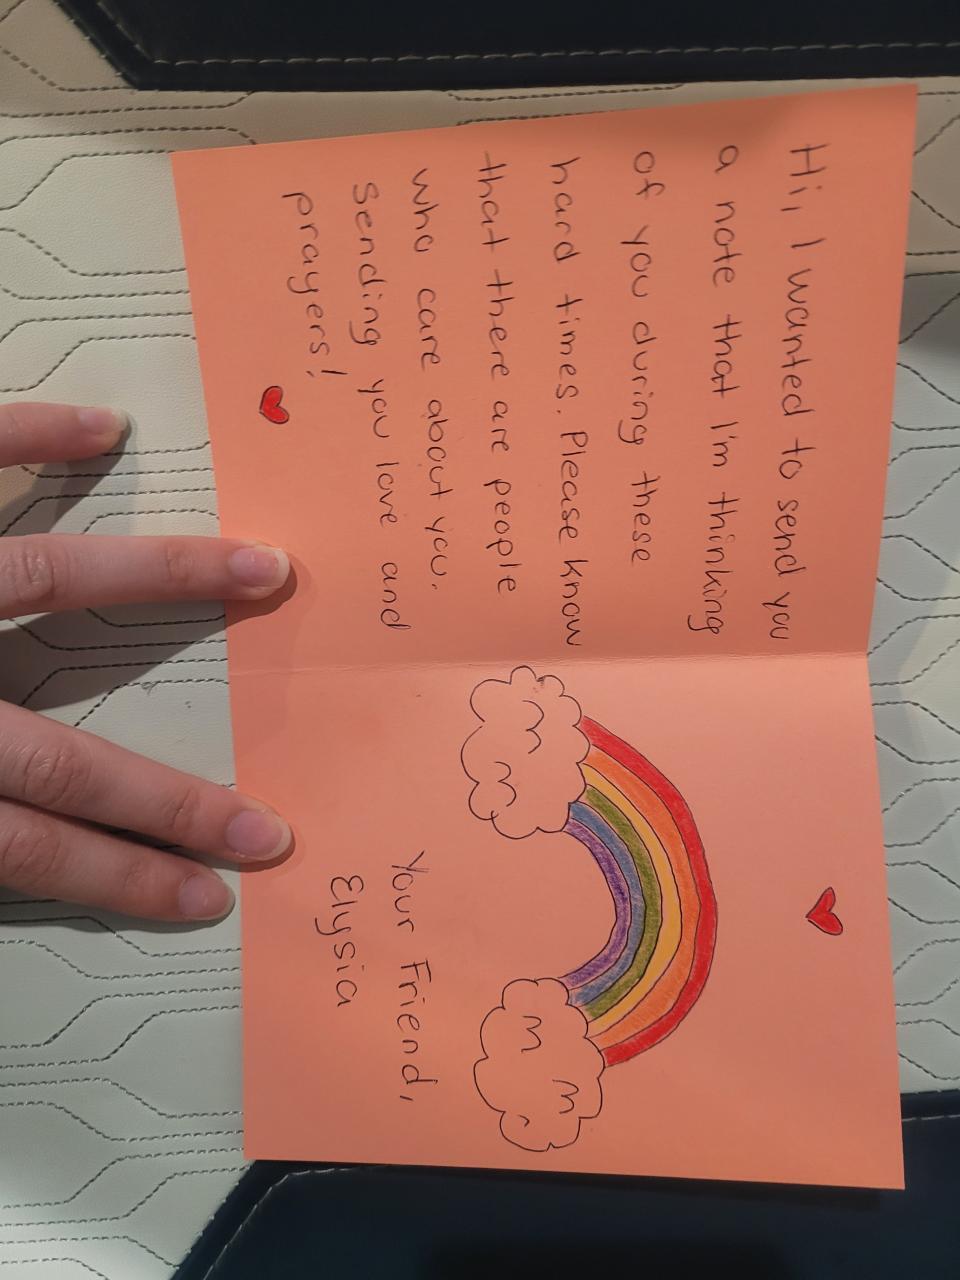 Hi, I wanted to send you
a note that I'm thinking
of you during these
hard times. Please know
that there are people
who care about you.
sending you love and
prayers!
Your Friend,
Elysia